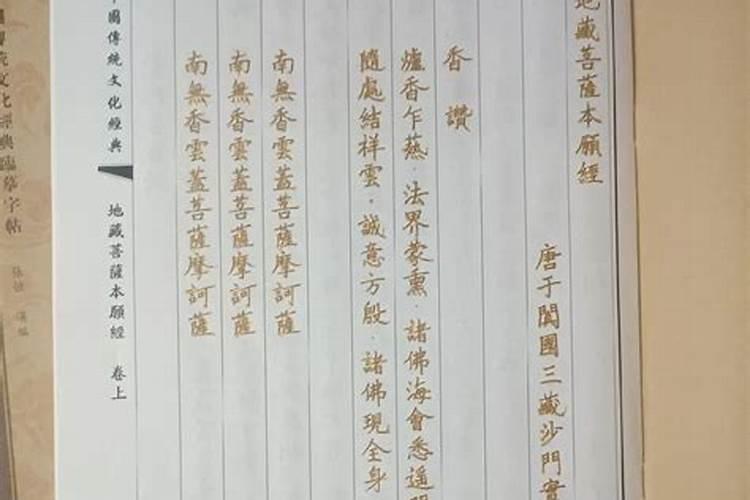 地藏菩薩本願經
唐于闐國三藏沙門實
香讚
爐香乍爇．法界蒙熏．諸佛海會悉遙
隨處結祥雲．誠意方殷．諸佛現全身
南無香雲蓋菩薩摩訶薩
南無香雲蓋菩薩摩訶薩
南無香雲蓋菩薩摩訶薩
國傳統文化經典
地藏菩薩本願經 卷上
傳統文化經典臨摹字帖